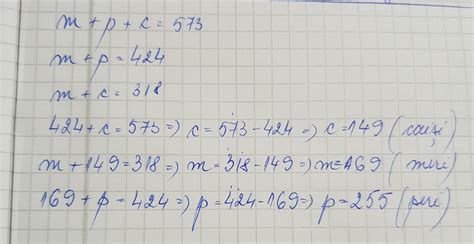 m + p + c = 573
m + p = 424
m + c = 318
424 + c = 573 => c = 573 - 424 => c = 149 (caiși)
m + 149 = 318 => m = 318 - 149 => m = 169 (meri)
169 + p = 424 => p = 424 - 169 => p = 255 (peri)